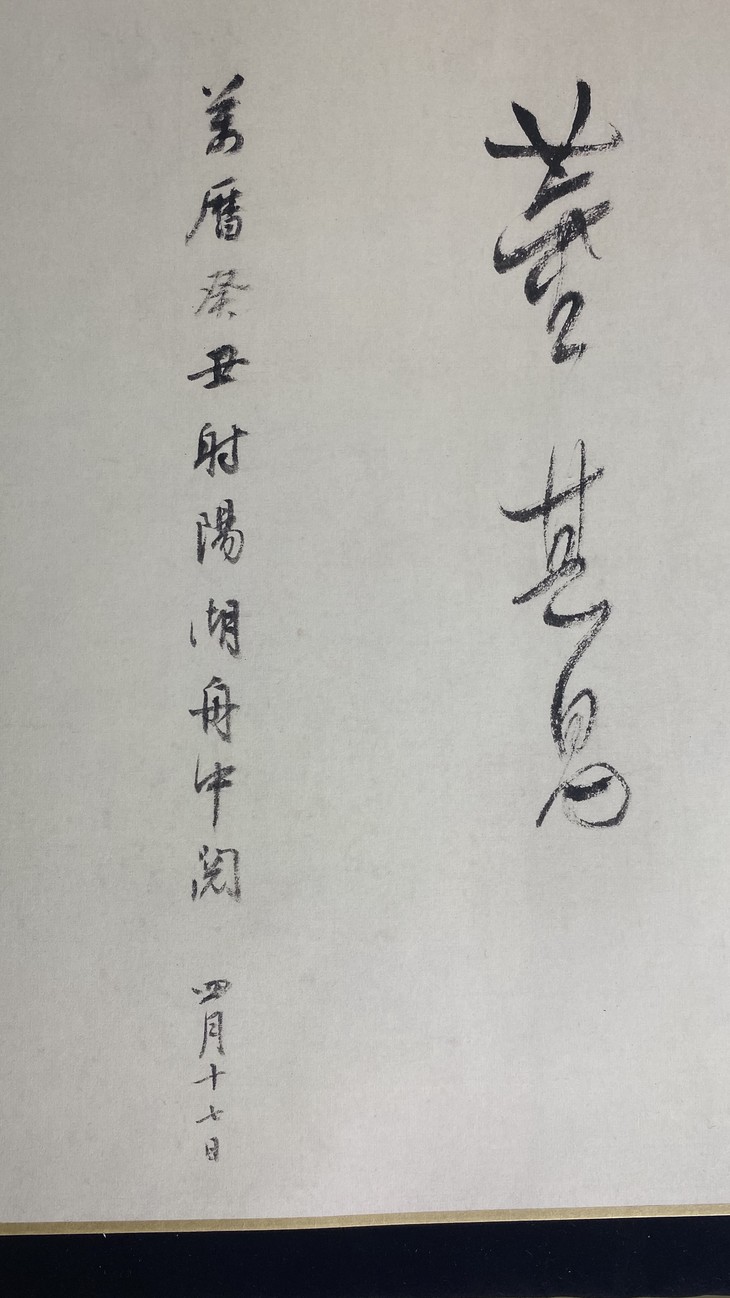 董其昌
萬曆癸丑射陽湖舟中閱 四月十七日